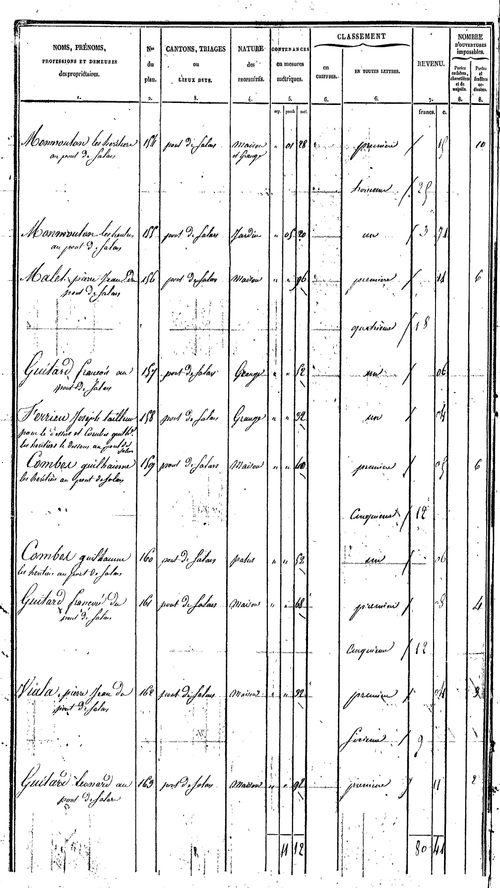 NOMS, PRÉNOMS,
PROFESSIONS ET DEMEURES
des propriétaires.
Nos
du
plan.
CANTONS, TRIAGES
ou
LIEUX DITS.
NATURE
des
CONTENANCES
en mesures
métriques.
CLASSEMENT
en
CHIFFRES.
EN TOUTES LETTRES.
REVENU.
NOMBRE
D'OUVERTURES
imposables.
1. 2. 3. 4. 5. 6. 6. 7. 8. 8.
arp. perch. met. francs. c.
Monmouton les héritiers 154 pont de Salars Maison 01 28 première 15 10
au pont de Salars et Grange
troisieme 25
Monmouton les héritiers 155 pont de Salars Jardin " 05 20 un 3 71
au pont de Salars
Malet pierre Jean 156 pont de Salars Maison " " 96 première 11 6
pont de Salars
quatrieme 18
Guitard françois au 157 pont de Salars Grange " " 52 un 06
pont de Salars
Ferrieu Joseph tailleur 158 pont de Salars Grange " " 32 un 04
pour le dessus et Combes
les héritiers le dessous au pont de
Salars
Combes guilhaume 159 pont de Salars Maison " " 40 première 05 6
les héritiers au pont de Salars
Cinquieme 12
Combes guilhaume 160 pont de Salars patus " " 52 un 06
les héritiers au pont de Salars
Guitard françois du 161 pont de Salars Maison " " 68 première 08 4
pont de Salars
Cinquieme 12
pierre Jean du 162 pont de Salars Maison " " 32 première 04 3
pont de Salars
Sixieme 9
Guitard Leonard au 163 pont de Salars Maison " " 92 première 11 2
pont de Salars
11 12 80 41